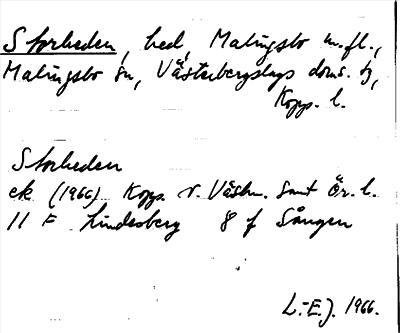 Storheden, hed, Malingsbo m.fl.,
Malingsbo sn, Västerbergslags doms. tg,
Kopp. l.
Storheden
ek (1966) Kopp. o. Västm. samt Ör. l.
11 F Lindesberg 8 f Sången
L.-E.J. 1966.